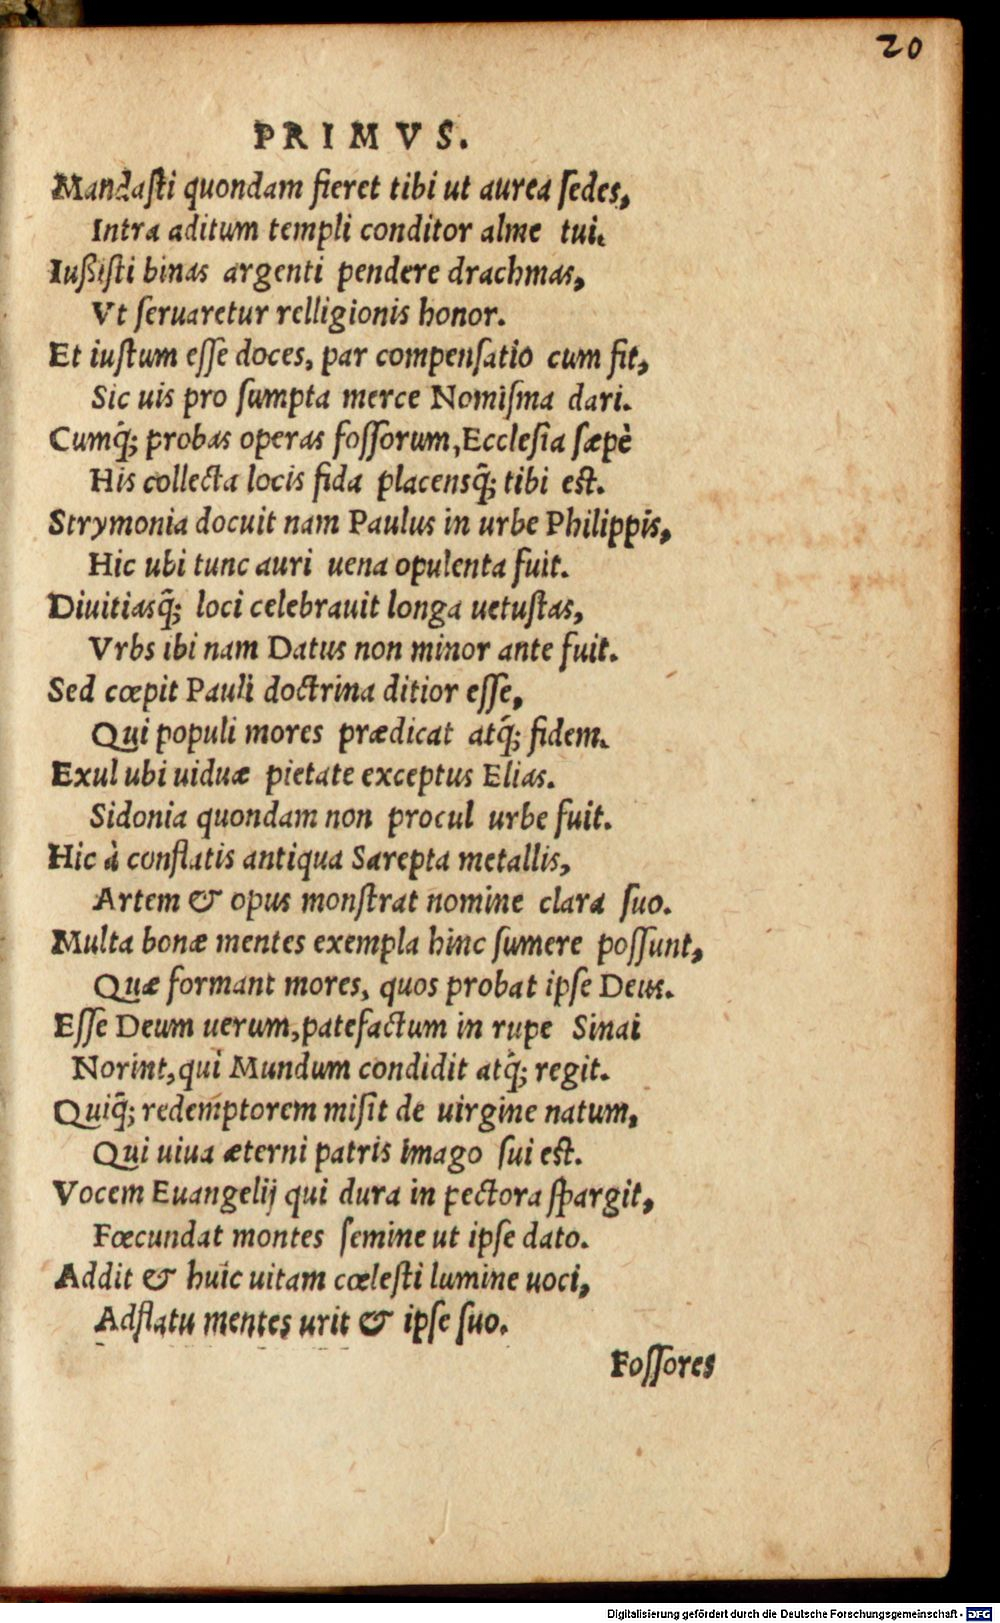 20
PRIMVS.
Mandaſti quondam fieret tibi ut aurea ſedes,
Intra aditum templi conditor alme tui.
Iußiſti binas argenti pendere drachmas,
Vt ſeruaretur relligionis honor.
Et iuſtum eſſe doces, par compenſatio cum fit,
Sic uis pro ſumpta merce Nomiſma dari.
Cumq̃; probas operas foſſorum, Eccleſia ſæpè
His collecta locis fida placensq̃; tibi eſt.
Strymonia docuit nam Paulus in urbe Philippis,
Hic ubi tunc auri uena opulenta fuit.
Diuitiasq̃; loci celebrauit longa uetuſtas,
Vrbs ibi nam Datus non minor ante fuit.
Sed cœpit Pauli doctrina ditior eſſe,
Qui populi mores prædicat atq̃; fidem.
Exul ubi uiduæ pietate exceptus Elias.
Sidonia quondam non procul urbe fuit.
Hic à conflatis antiqua Sarepta metallis,
Artem & opus monſtrat nomine clara ſuo.
Multa bonæ mentes exempla hinc ſumere poſſunt,
Quæ formant mores, quos probat ipſe Deus.
Eſſe Deum uerum, patefactum in rupe Sinai
Norint, qui Mundum condidit atq̃; regit.
Quiq̃; redemptorem miſit de uirgine natum,
Qui uiua æterni patris imago ſui eſt.
Vocem Euangelij qui dura in pectora ſpargit,
Fœcundat montes ſemine ut ipſe dato.
Addit & huic uitam cœleſti lumine uoci,
Adflatu mentes urit & ipſe ſuo.
Foſſores
Digitalisierung gefördert durch die Deutsche Forschungsgemeinschaft - DFG